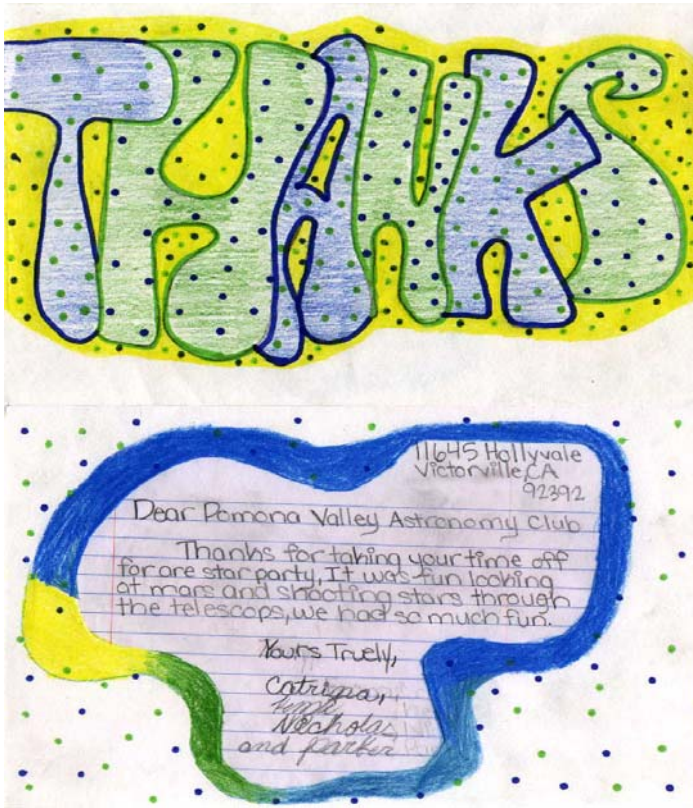 THANKS
11645 Hollyvale
Victorville, CA
92392
Dear Pomona Valley Astronomy Club
Thanks for taking your time off
for are star party, It was fun looking
at mars and shooting stars through
the telescops, we had so much fun.
Yours Truely,
Catrina,
Necholas,
and Parker